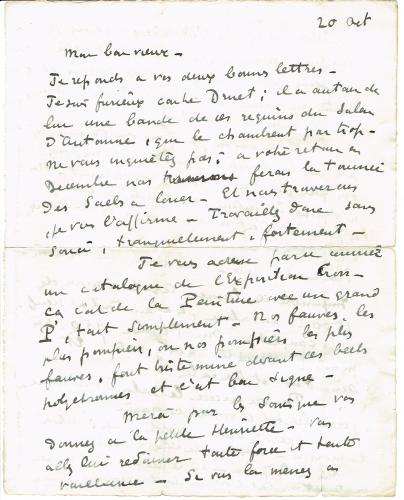 20 Oct
Mon bon vieux –
Je reponds a vos deux bonnes lettres –
Je suis furieux contre Druet ; il a autour de
lui une bande de ces requins du Salon
D'Automne, que le chambrent par trop –
ne vous inquiétez pas ; a votre retour en
Decembre nous ferons la tournée
des Salles a louer – Et nous trouverons
je vous l'affirme – Travaillez donc sans
souci, tranquillement, fortement –
Je vous adresse par ce courrier
un catalogue de l'Exposition Cross –
ça c'est de la Peinture avec un grand
P, tout simplement – Nos fauves, les
plus pompiers, ou nos pompiers les plus
fauves, font triste mine devant ces belles
polychromes et c'est bon signe –
Merci pour les que vous
donnez a la petite Henriette – Vous
allez lui redonner toute force et toute
vaillance – Si vous la menez au